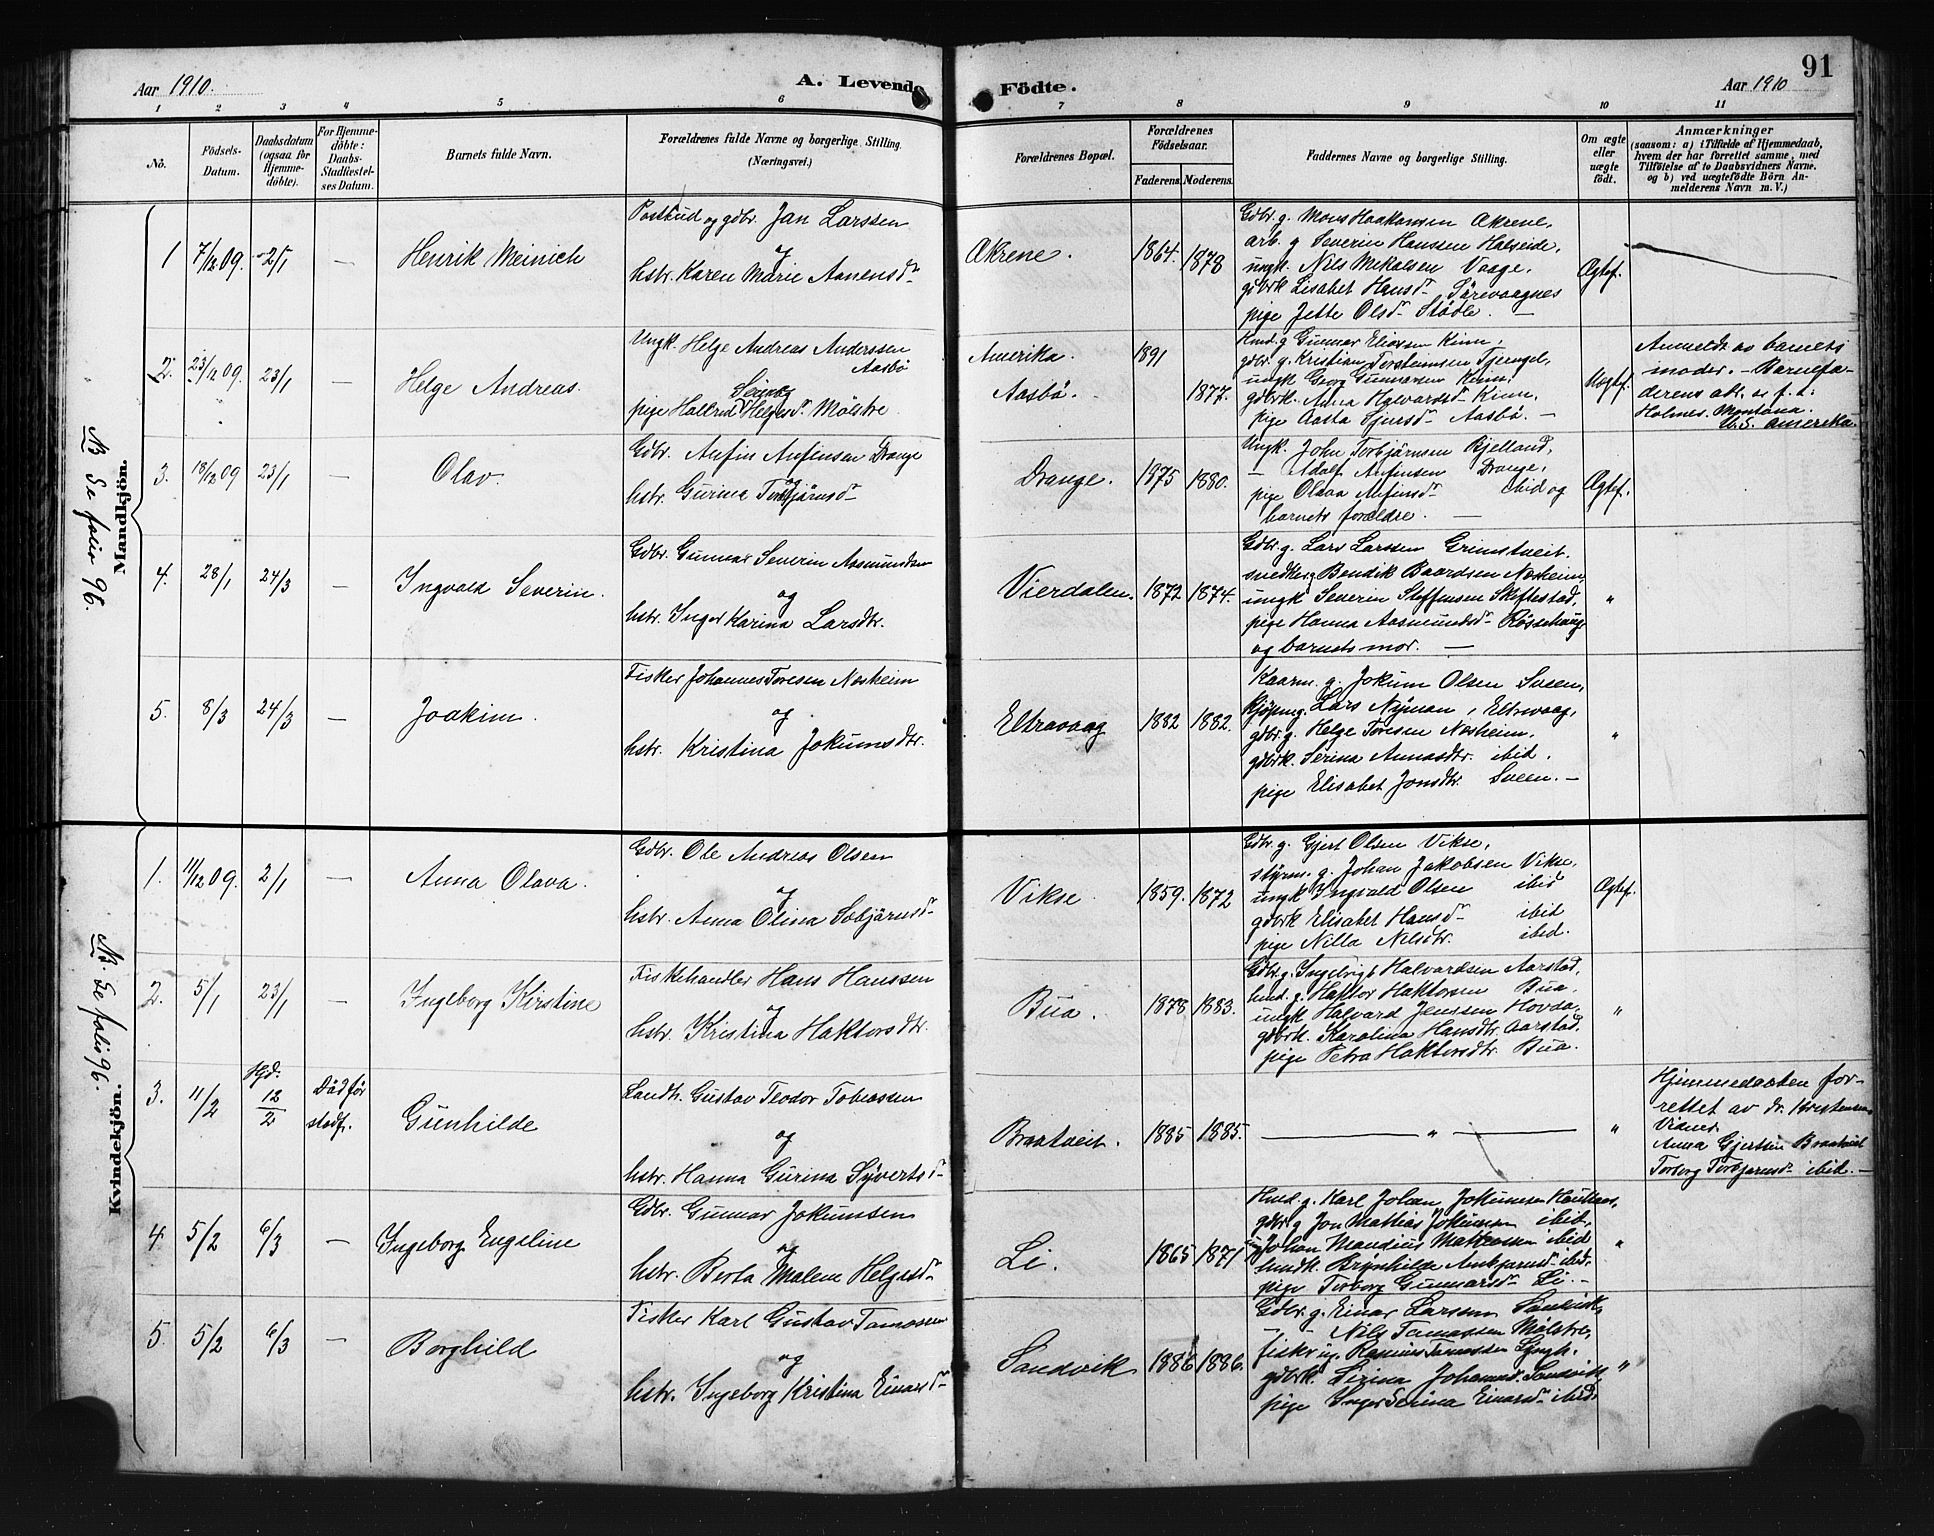 Aar 1910. A. Levende Födte. Aar 1910 91
1 2 3 4 5 6 7 8 9 10 11
No. Födsels-Datum. Daabsdatum (ogsaa for Hjemmedöbte). For Hjemmedöbte: Daabs-Stadfæstelses Datum. Barnets fulde Navn. Forældrenes fulde Navne og borgerlige Stilling. (Næringsvei.) Forældrenes Bopæl. Forældrenes Födselsaar. Faderens. Moderens. Faddernes Navne og borgerlige Stilling. Om ægte eller uægte födt. Anmærkninger (saasom: a) i Tilfælde af Hjemmedaab, hvem der har forrettet samme, med Tilföielse af to Daabsvidners Navne. og b) ved uægtefödte Börn Anmelderens Navn m. V.)
Mandkjön.
NB Se folio 96.
1 7/12 09. 2/1 — Henrik Meinich
Postbud og gdbr. Jan Larssen
og
hstr. Karen Marie Aanensdr
Økrene. 1864. 1878
Gdbr. g. Mons Haakonsen Økrene,
arb. g Severin Hanssen Halseide,
ungk. Nils Mikalsen Vaage,
gdbrk Lisabet Hansdr Sørevaagnes
pige Jette Olsdr Støle. —
Ægtef.
2. 23/12 09. 23/1 — Helge Andreas.
Ungk. Helge Andreas Anderssen
Aasbø
og
pige Hallrid Helgesdr Mølstre.
Amerika. 1891
Aasbø. 1877.
Hmd. g Gunnar Eliassen Kinn,
gdbr. g. Kristian Torsteinnsen Tjerngel,
ungk Georg Gunnarsen Kinn,
gdbrk. Anna Halvardsdr Kinn,
pige Aasta Sjursdr Aasbø. —
Uægtef.
Anmeldt av barnets
moder. — Barnefaderens
Holmes. Montana.
U.S. Amerika.
3. 18/12 09 23/1 — Olav.
Gdbr. Anfin Anfinsen Drange
og
hstr. Gurina Torbjørnsdr
Drange. 1875 1880.
Ungk. John Torbjørnsen Kjelland,
— Adolf Anfinsen Drange,
pige Olava Anfinsdr ibid og
barnets forældre. —
Ægtef.
4. 28/1 24/3 — Ingvald Severin.
Gdbr. Gunnar Severin Aasmundsen
og
hstr. Inger Karina Larsdtr.
Vierdalen. 1872 1874.
Gdbr. g. Lars Larssen Grimstveit.
snedker g Bendik Baardsen Nosheim,
ungk Severin Steffensen Skiftestad,
pige Hanna Aasmundsdr Røssehaug
og barnets mor. —
"
5. 8/3 24/3 — Joakim.
Fisker Johannes Toresen Nosheim
og
hstr. Kristina Jokumsdtr.
Eltravaag 1882 1882.
Kaarm. g. Jokum Olsen Sveen,
Kjøpm g. Lars Nyman, Eltravaag,
gdbr. g. Helge Toresen Nosheim,
gdbrk. Serina Annasdtr. ibid.
pige Elisabet Jonsdtr. Sveen. —
"
Kvindekjön.
NB. Se folio 96.
1. 11/12 09. 2/1 — Anna Olava.
Gdbr. Ole Andreas Olsen
og
hstr. Anna Olina Sebjørnsdr
Vikse. 1859. 1872
Gdbr. g. Gjert Olsen Vikse,
styrm. g. Johan Jakobsen Vikse,
ungk Ingvald Olsen ibid
gdbrk Elisabet Hansdr ibid
pige Nilla Nilsdtr. ibid.
Ægtef.
2. 5/1 23/1 — Ingeborg Kirstine
Fiskehandler Hans Hanssen
og
hstr. Kristina Haktorsdtr.
Bua. 1878 1883.
Gdbr. g. Ingebrigt Halvardsen Aarstad,
hmd. g. Haktor Haktorsen Bua.
ungk Halvard Jenssen Hovda,
gdbrk. Karolina Hansdtr. Aarstad.
pige Petra Haktorsdtr. Bua.
"
3. 11/2 Hjd. 12/2 Død før stadf. Gunhilde
Landh. Gustav Teodor Tobiassen
og
hstr. Hanna Gurina Syvertsdr
Braatveit. 1885 1885.
— " —
"
Hjemmedaaben forrettet
av dr. Kristensen
Vidner.
Anna Gjertsen Braatveit
Torborg Torbjørnsdr ibid. —
4. 5/2 6/3 — Ingeborg Engeline
Gdbr. Gunnar Jokumsen
og
hstr. Berta Malene Helgesdr
Li. 1865 1871
Hmd. g. Karl Johan Jokumsen
gdbr g Jon Mattias Jokumsen ibid,
ung Johan Mandius Mattiassen ibid
hmdk. Brynhilda Ambjørnsdr ibid,
pige Torborg Gunnarsdr Li. —
"
5. 5/2 6/3 — Borghild
Fisker Karl Gustav Tomassen
og
hstr. Ingeborg Kristina Einarsdr
Sandvik 1886 1886.
Gdbr. g. Einar Larssen Sandvik,
— Nils Tomassen Mølstre,
fisker ug. Rasmus Tomassen Lyngh.
gdbrk. Serina Johannesd. Sandvik,
pige Inger Serina Einarsdr ibid.
"